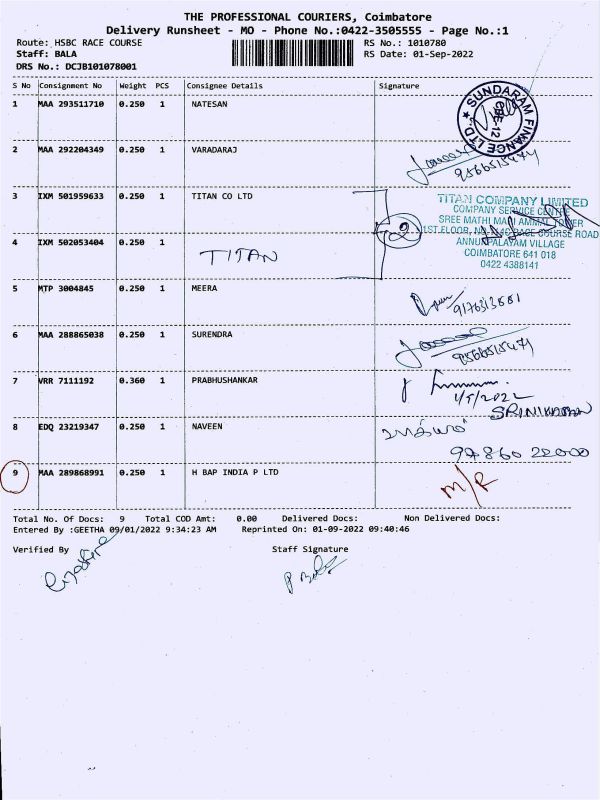 THE PROFESSIONAL COURIERS, Coimbatore
Delivery Runsheet - MO - Phone No.:0422-3505555 - Page No.:1
Route: HSBC RACE COURSE
RS No.: 1010780
Staff: BALA
RS Date: 01-Sep-2022
DRS No.: DCJB101078001
S No Consignment No Weight PCS Consignee Details Signature
1 MAA 293511710 0.250 1 NATESAN
SUNDARAM FINANCE LTD
CBE-12
2 MAA 292204349 0.250 1 VARADARAJ
9566515471
3 IXM 501959633 0.250 1 TITAN CO LTD
TITAN COMPANY LIMITED
COMPANY SERVICE CENTRE
SREE MATHI MANI AMMAL TOWER
1ST FLOOR, RACE COURSE ROAD
ANNUPALAYAM VILLAGE
COIMBATORE 641 018
0422 4388141
2
4 IXM 502053404 0.250 1 TITAN
5 MTP 3004845 0.250 1 MEERA
6 MAA 288865038 0.250 1 SURENDRA
9566515471
7 VRR 7111192 0.360 1 PRABHUSHANKAR
8 EDQ 23219347 0.250 1 NAVEEN
9 MAA 289868991 0.250 1 H BAP INDIA P LTD
M/R
Total No. Of Docs: 9 Total COD Amt: 0.00 Delivered Docs: Non Delivered Docs:
Entered By :GEETHA 09/01/2022 9:34:23 AM Reprinted On: 01-09-2022 09:40:46
Verified By Staff Signature